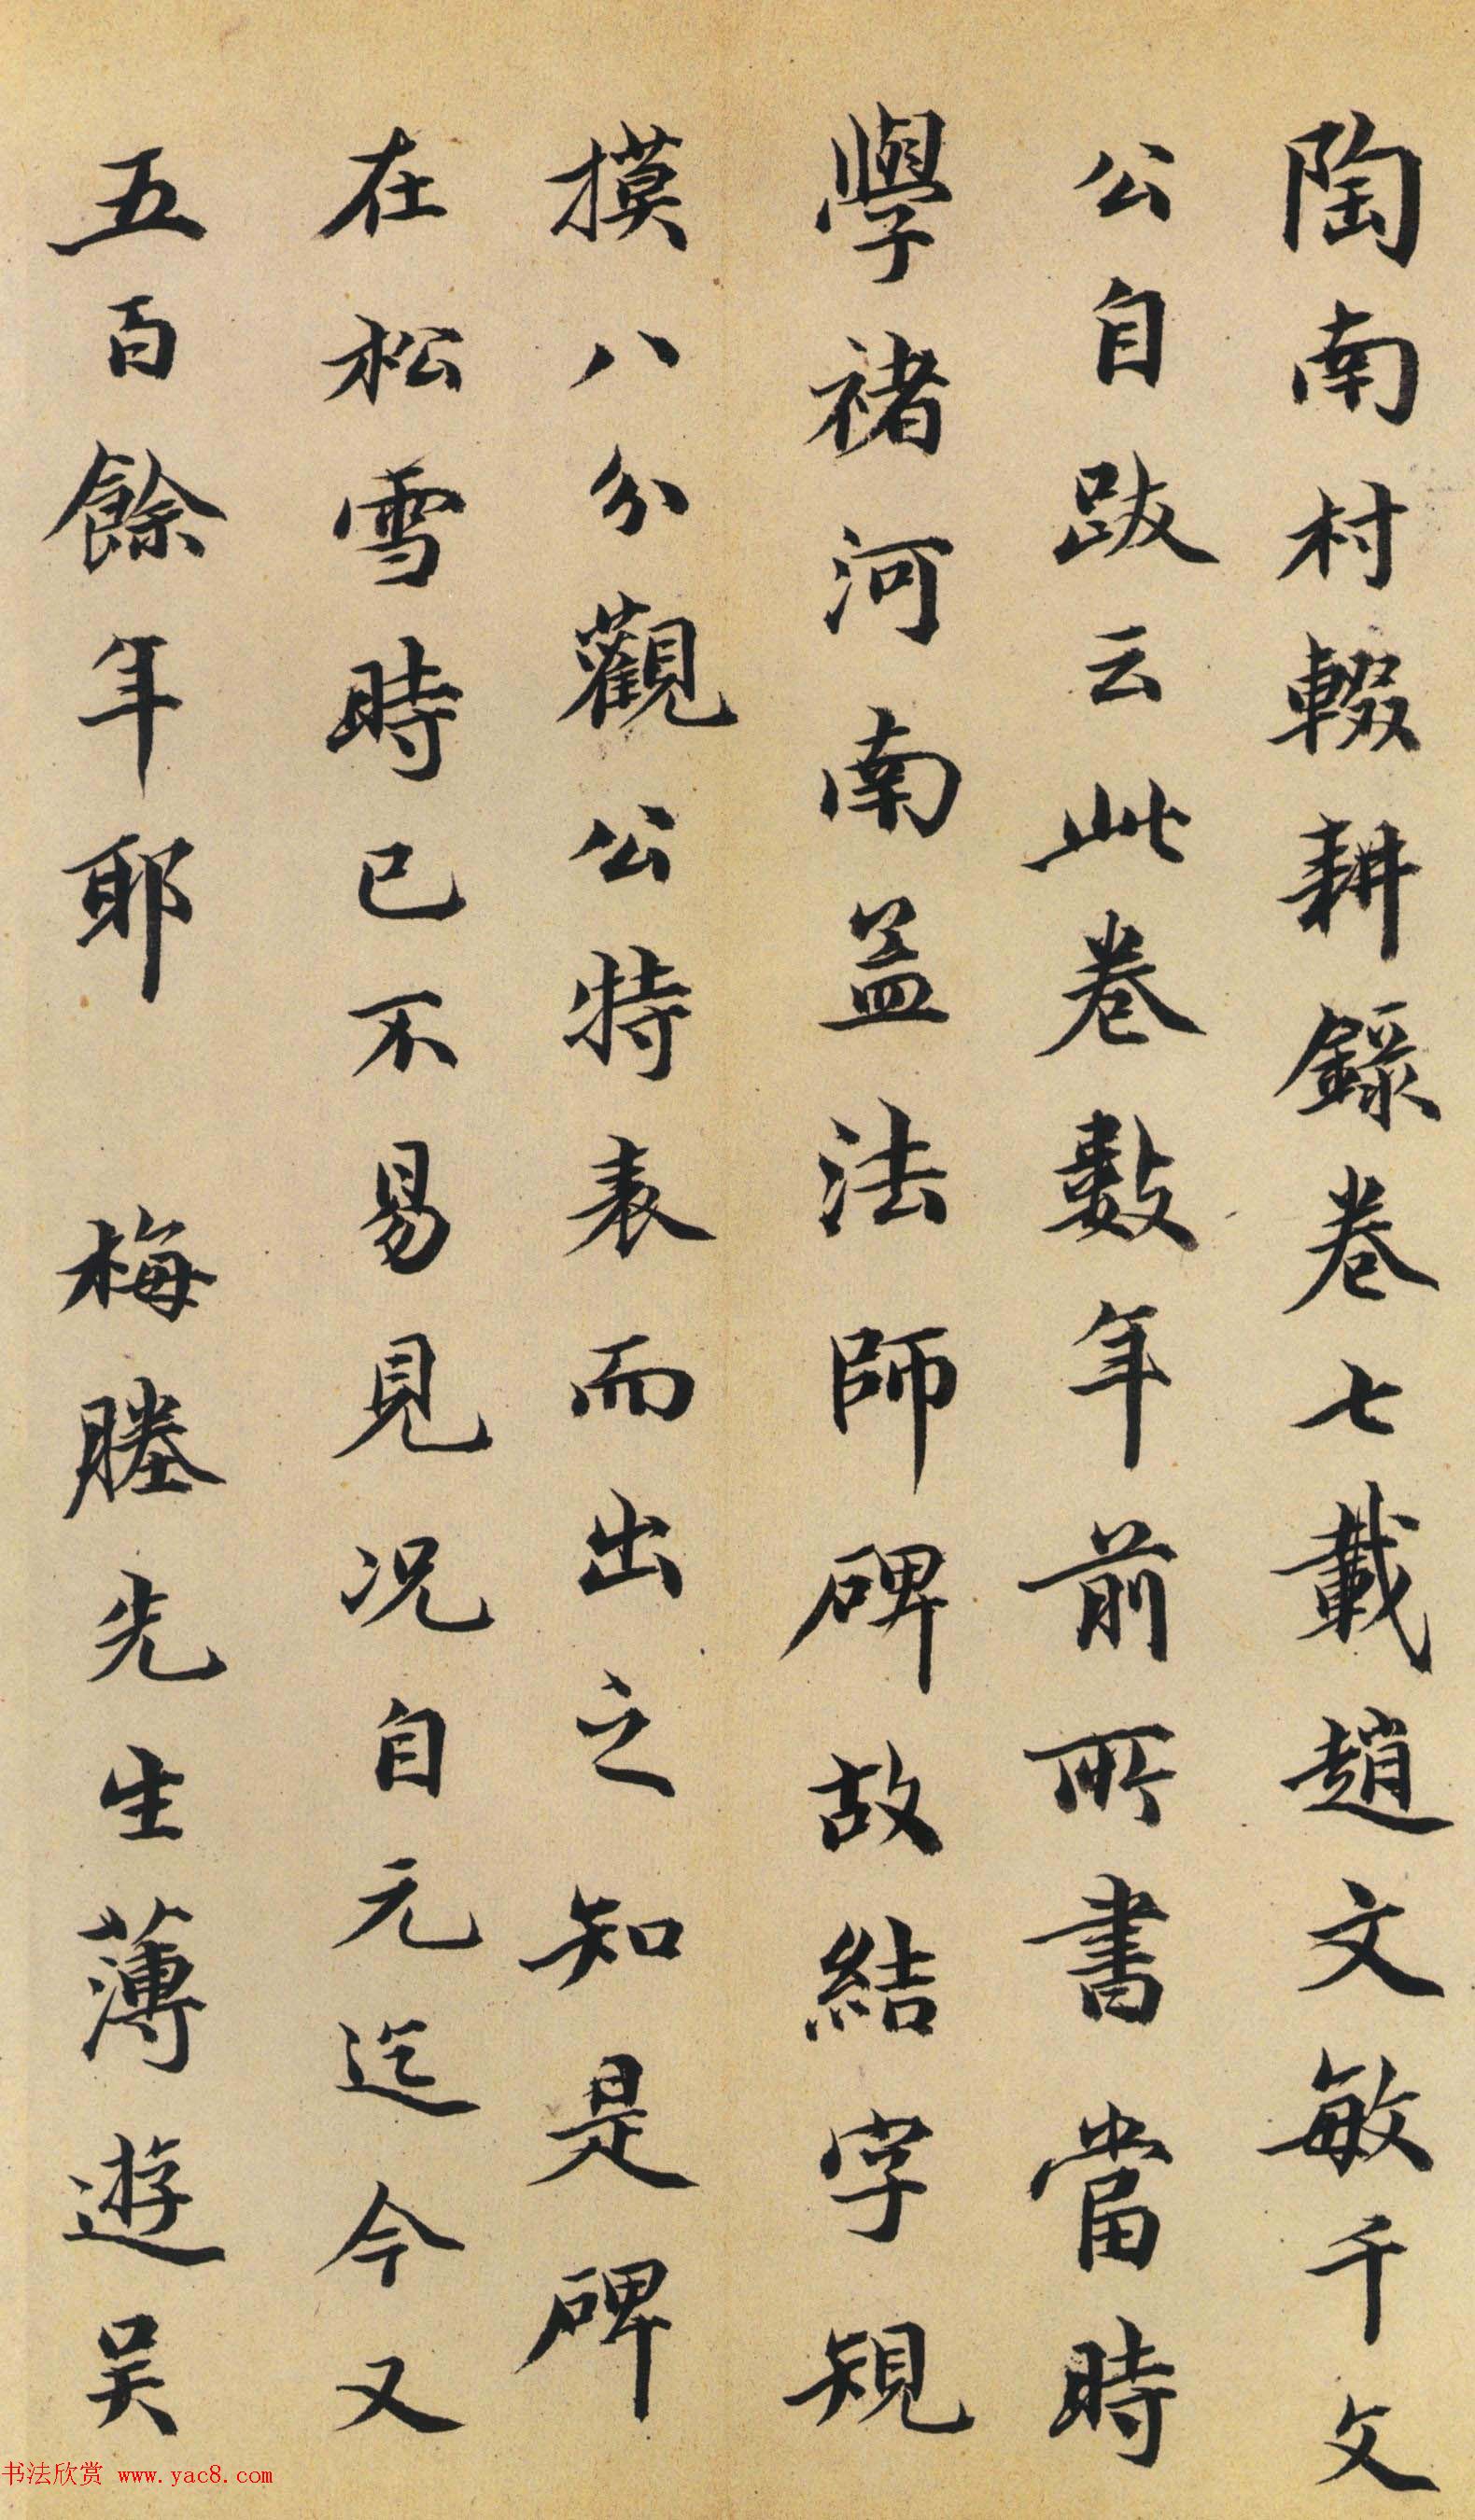 陶南村輟耕錄卷七載趙文敏千文
公自跋云此卷數年前所書當時
學褚河南孟法師碑故結字規
摸八分觀公特表而出之知是碑
在松雪時已不易見況自元迄今又
五百餘年耶　梅塍先生薄遊吴
书法欣赏 www.yac8.com